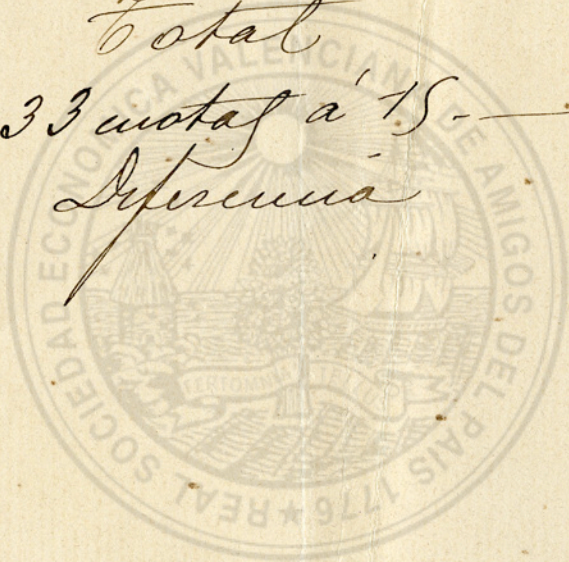 Total
33 cuotas á 15.—
Diferencia
REAL SOCIEDAD ECONOMICA VALENCIANA DE AMIGOS DEL PAIS 1776